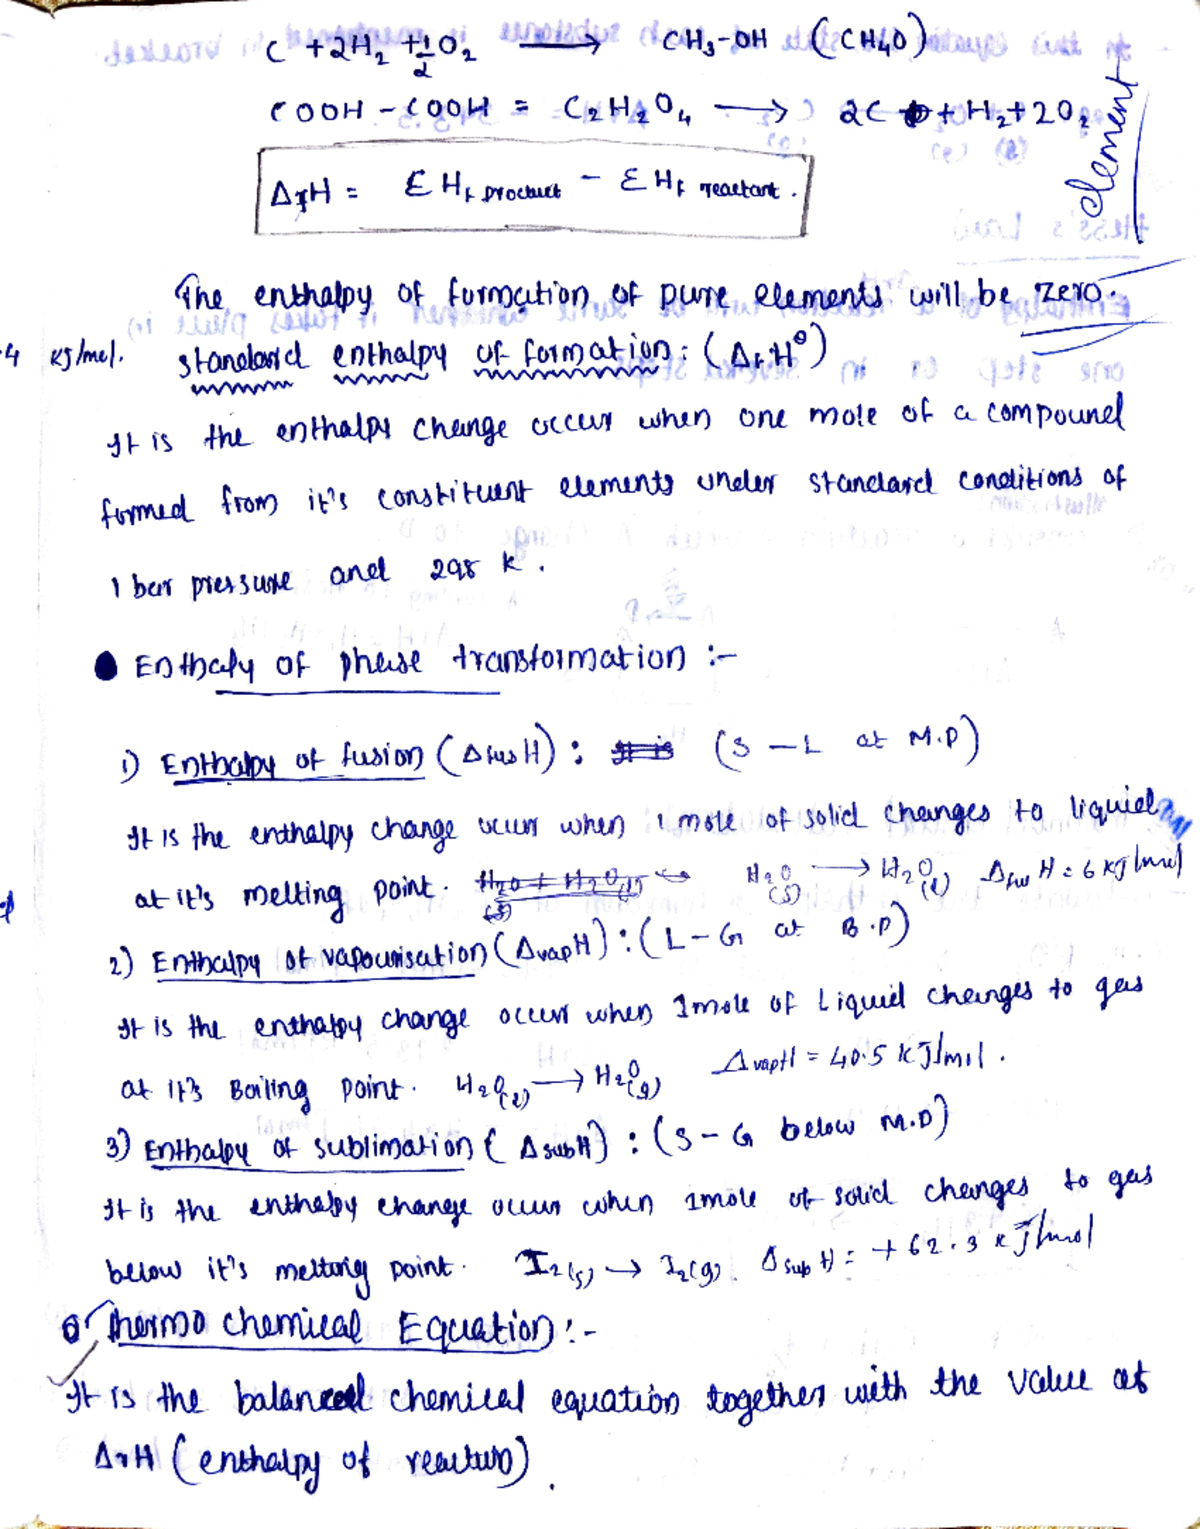 C + 2H₂ + ½O₂ ⟶ CH₃-OH (CH₄O)
COOH - COOH = C₂H₂O₄ ⟶ 2C + H₂ + 2O₂
element
ΔrH = ΣHf product - ΣHf reactant.
The enthalpy of formation of pure elements will be zero.
4 kJ/mol.
standard enthalpy of formation : (ΔfH⁰)
It is the enthalpy change occur when one mole of a compound
formed from it's constituent elements under standard conditions of
1 bar pressure and 298 k.
● Enthaly of phase transformation :-
1) Enthalpy of fusion (Δfus H) : It is (S - L at M.P)
It is the enthalpy change occur when 1 mole of solid changes to liquid
at it's melting point. H₂O(s) ⟶ H₂O(l) Δfus H = 6 kJ/mol
2) Enthalpy of vapourisation (ΔvapH) : (L - G at B.P)
It is the enthalpy change occur when 1mole of Liquid changes to gas
at it's Boiling point. H₂O(l) ⟶ H₂O(g) ΔvapH = 40.5 kJ/mol.
3) Enthalpy of sublimation (ΔsubH) : (S - G below M.P)
It is the enthalpy change occur when 1mole of solid changes to gas
below it's melting point. I₂(s) → I₂(g). Δsub H = +62.3 kJ/mol
Thermo chemical Equation :-
It is the balanced chemical equation together with the value of
ΔrH (enthalpy of reaction).